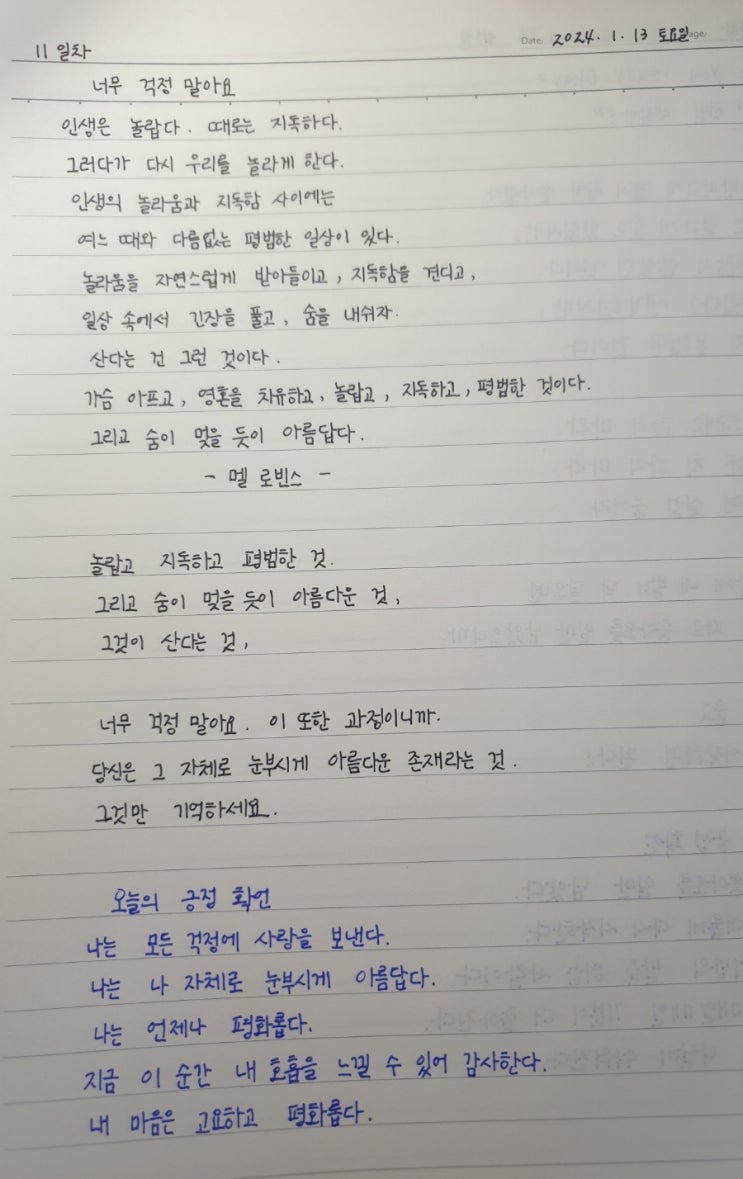 11일차
Date/ 2024. 1. 13 토요일 age/
너무 걱정 말아요
인생은 놀랍다. 때로는 지독하다.
그러다가 다시 우리를 놀라게 한다.
인생의 놀라움과 지독함 사이에는
여느 때와 다름없는 평범한 일상이 있다.
놀라움을 자연스럽게 받아들이고, 지독함을 견디고,
일상 속에서 긴장을 풀고, 숨을 내쉬자.
산다는 건 그런 것이다.
가슴 아프고, 영혼을 치유하고, 놀랍고, 지독하고, 평범한 것이다.
그리고 숨이 멎을 듯이 아름답다.
- 멜 로빈스 -
놀랍고 지독하고 평범한 것.
그리고 숨이 멎을 듯이 아름다운 것,
그것이 산다는 것,
너무 걱정 말아요. 이 또한 과정이니까.
당신은 그 자체로 눈부시게 아름다운 존재라는 것.
그것만 기억하세요.
오늘의 긍정 확언
나는 모든 걱정에 사랑을 보낸다.
나는 나 자체로 눈부시게 아름답다.
나는 언제나 평화롭다.
지금 이 순간 내 호흡을 느낄 수 있어 감사한다.
내 마음은 고요하고 평화롭다.